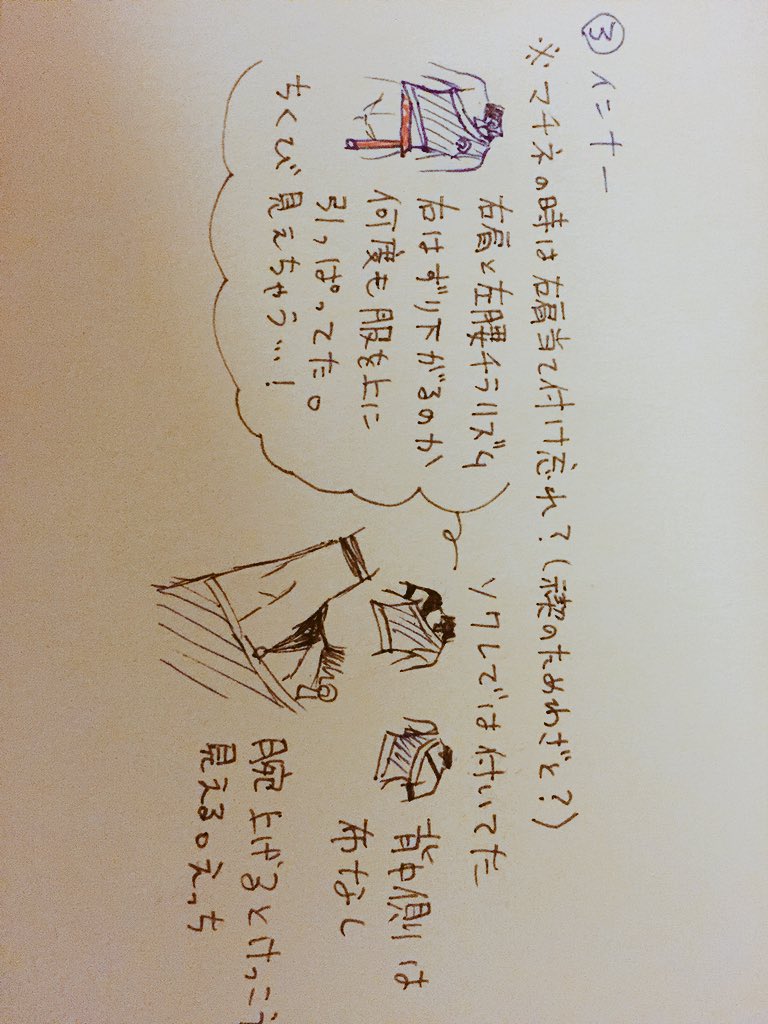 ③インナー
※マチネの時は右肩当て付け忘れ?(禊のためわざと?)
右肩と左腰チラリズム
右はずり下がるのか
何度も服を上に
引っぱってた。
ちくび見えちゃう…!
ソワレでは付いてた
背中側は
布なし
腕上げるとけっこう
見える。えっち